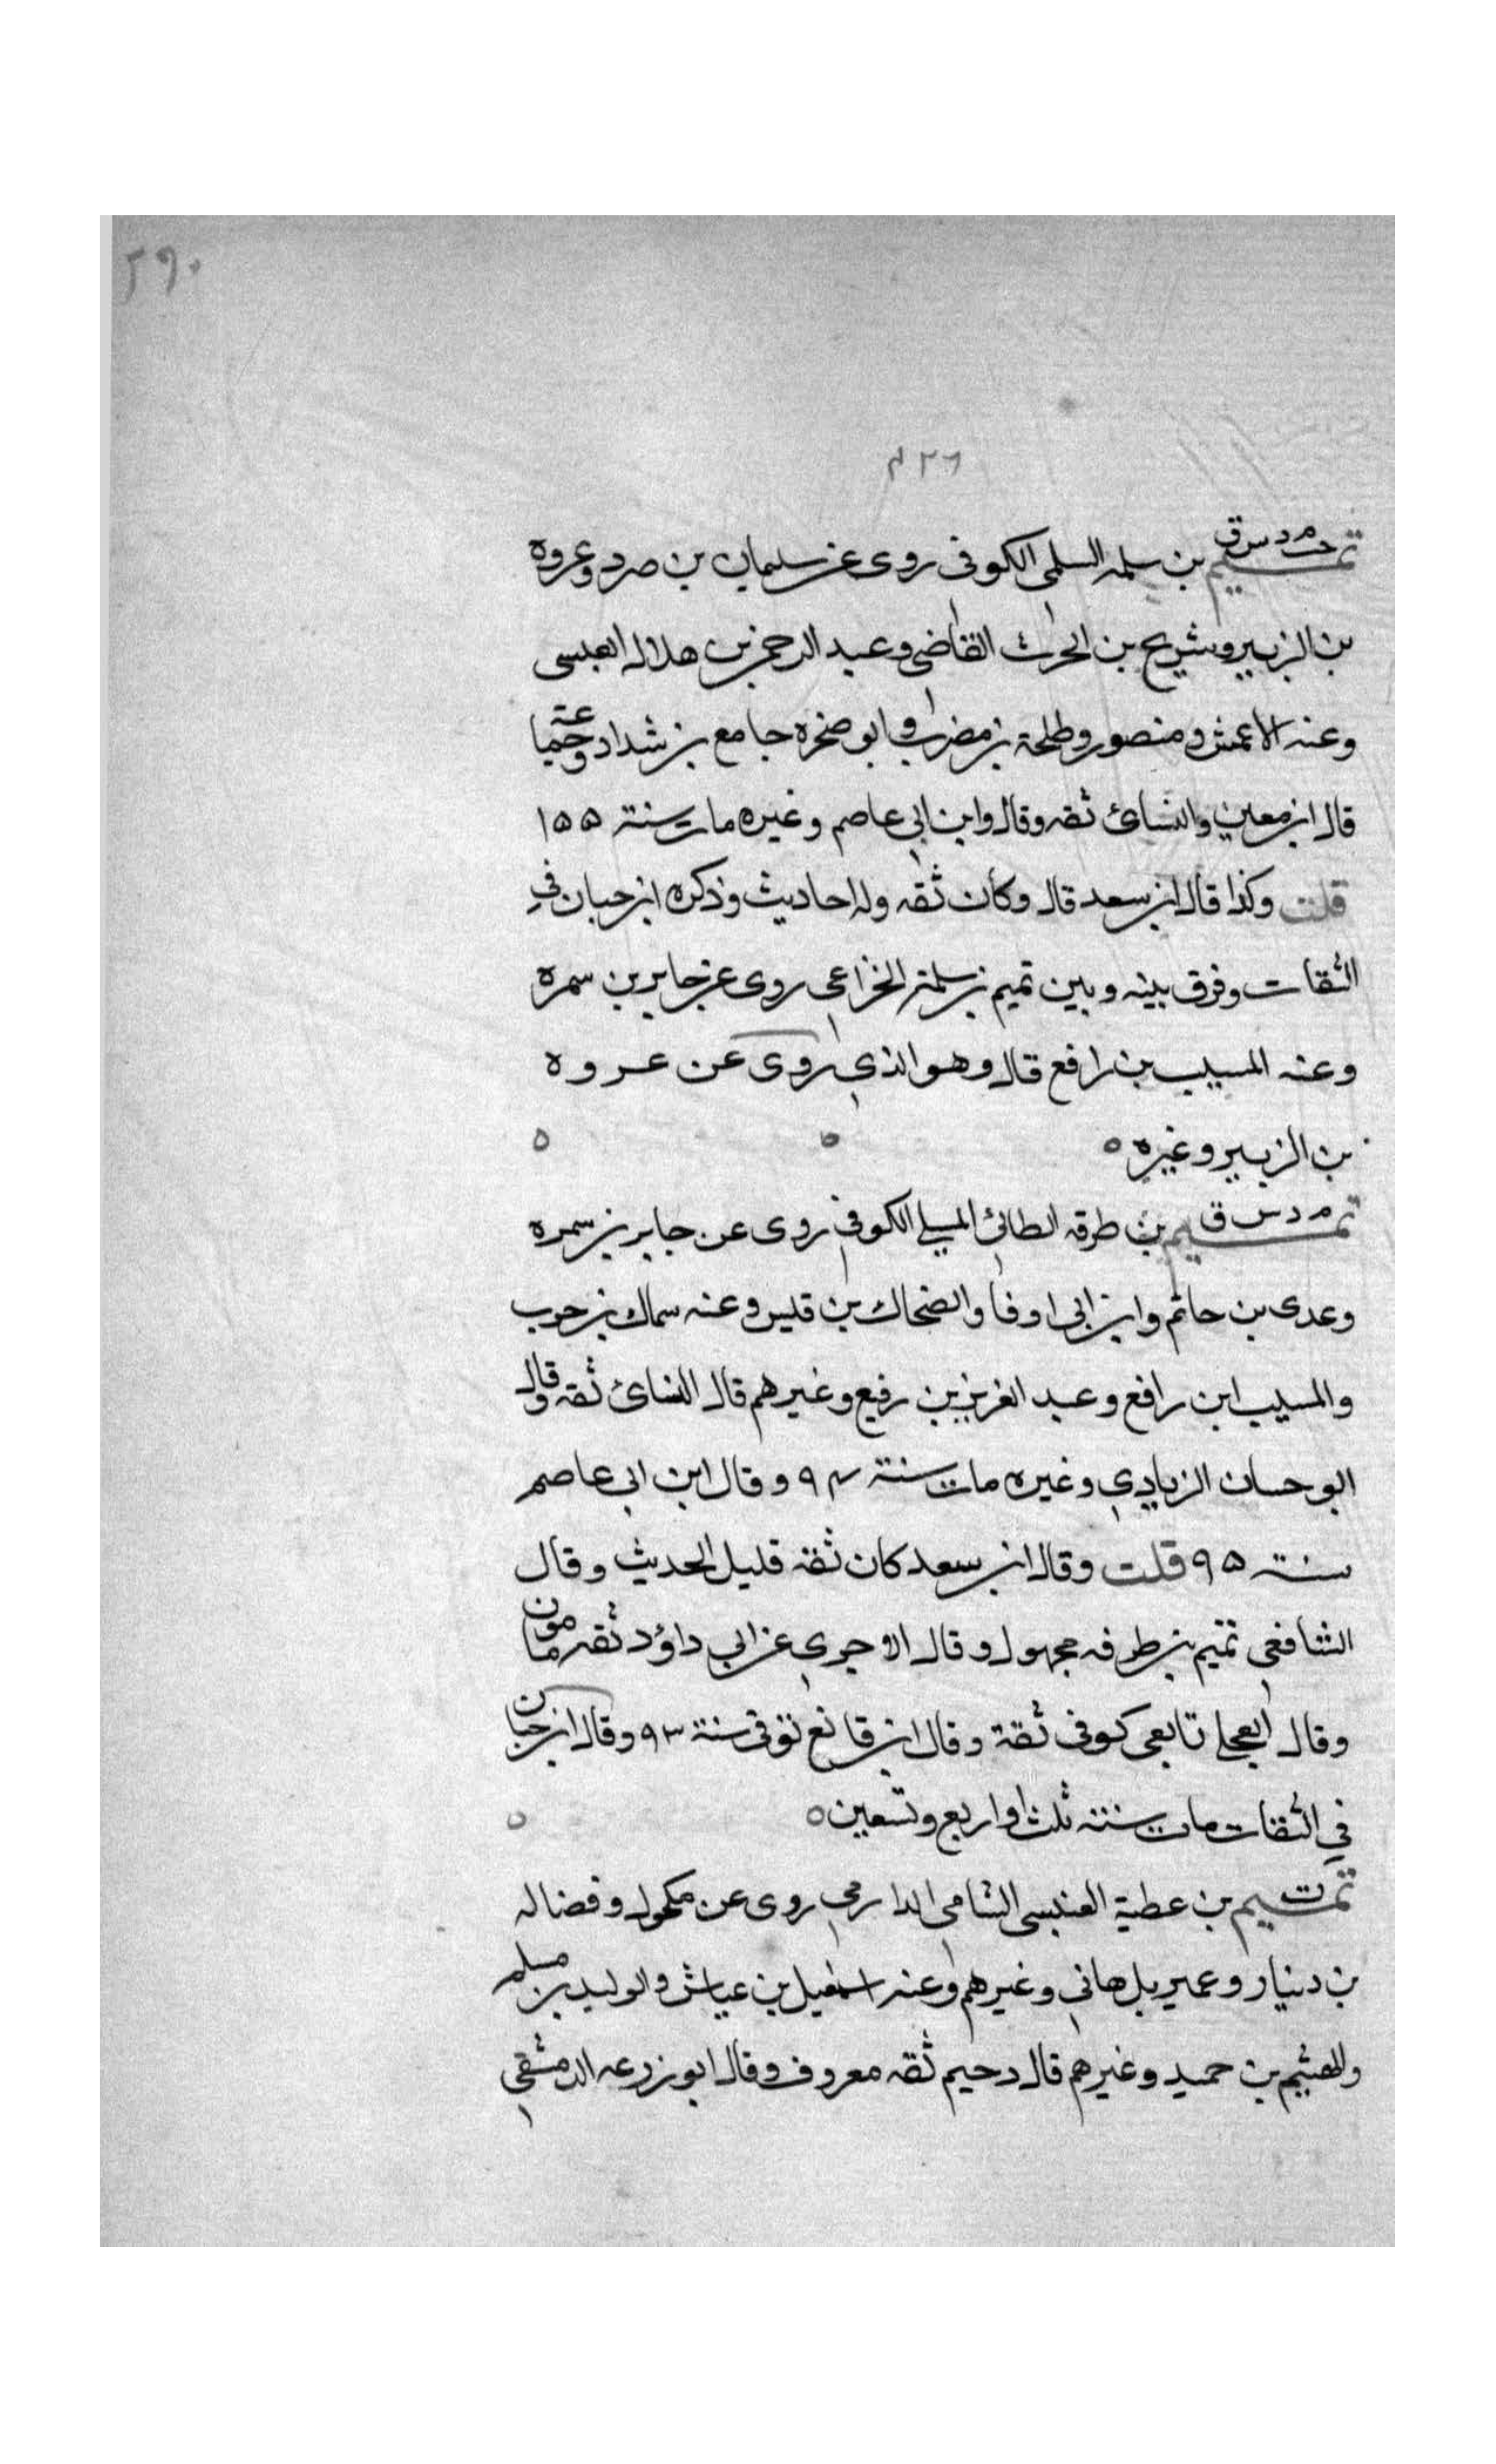 ٢٩٠
٤٢٦
خت م د س ق
تميم بن سلمه السلمى الكوفى روى عن سليمان بن صرد وعروه
بن الزبير وشريح بن الحرث القاضى وعبد الرحمن بن هلال العبسى
وعنه الاعمش ومنصور وطلحة بن مضرب وابو صخره جامع بن شداد وجماعة
قال ابن معين والنسائ ثقه وقال وابن ابى عاصم وغيره مات سنة ١٥٥
قلت وكذا قال ابن سعد قال وكان ثقه وله احاديث وذكره ابن حبان في
الثقات وفرق بينه وبين تميم بن سلمة الخزاعى روى عن جابر بن سمره
وعنه المسيب بن رافع قال وهو الذي روى عن عروه
بن الزبير وغيره ه
م د س ق
تميم بن طرقه الطائ المسلي الكوفى روى عن جابر بن سمره
وعدى بن حاتم وابن ابى اوفا والضحاك بن قيس وعنه سماك بن حرب
والمسيب ابن رافع وعبد العزيز بن رفيع وغيرهم قال النسائ ثقه وقال
ابو حسان الزيادي وغيره مات سنة ٩٤ وقال ابن ابى عاصم
سنة ٩٥ قلت وقال ابن سعد كان ثقه قليل الحديث وقال
الشافعى تميم بن طرفه مجهول وقال الاجرى عن ابي داؤد ثقه مامون
وقال العجلي تابعى كوفى ثقة وقال ابن قانع توفى سنة ٩٣ وقال ابن حبان
في الثقات مات سنة ثلث او اربع وتسعين ه
ت
تميم بن عطية العنبسى الشامى الدارمي روى عن مكحول وفضاله
بن دينار وعمير بل هانى وغيرهم وعنه اسمعيل بن عياش والوليد بن مسلم
والهيثم بن حميد وغيرهم قال دحيم ثقه معروف وقال ابو زرعه الدمشقي